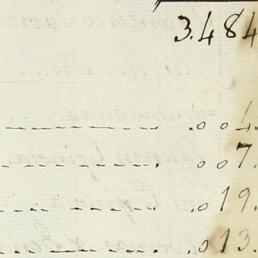 3.484
.004.
.007.
.019.
.013.